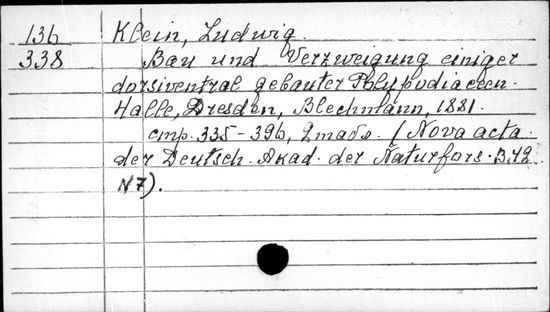 136 Klein, Ludwig.
338 Bau und Verzweigung einiger
dorsiventral gebauter Polypodiaceen.
Halle, Dresden, Blochmann, 1881.
стр. 335-396, 2табл. (Nova acta
der Deutsch. Akad. der Naturfors. B.42
N7).